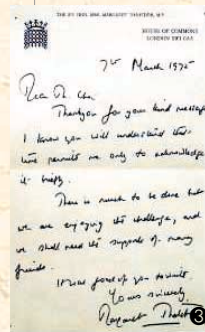 THE RT. HON. MRS. MARGARET THATCHER, M.P.
HOUSE OF COMMONS
LONDON SW1A 0AA
7th March 1975
Dear Mr.
Thank you for your kind message
I know you will understand that
time permits me only to acknowledge
it briefly.
There is much to be done but
we are enjoying the challenge, and
we shall need the support of many
friends.
It was good of you to write.
Yours sincerely
Margaret Thatcher
3